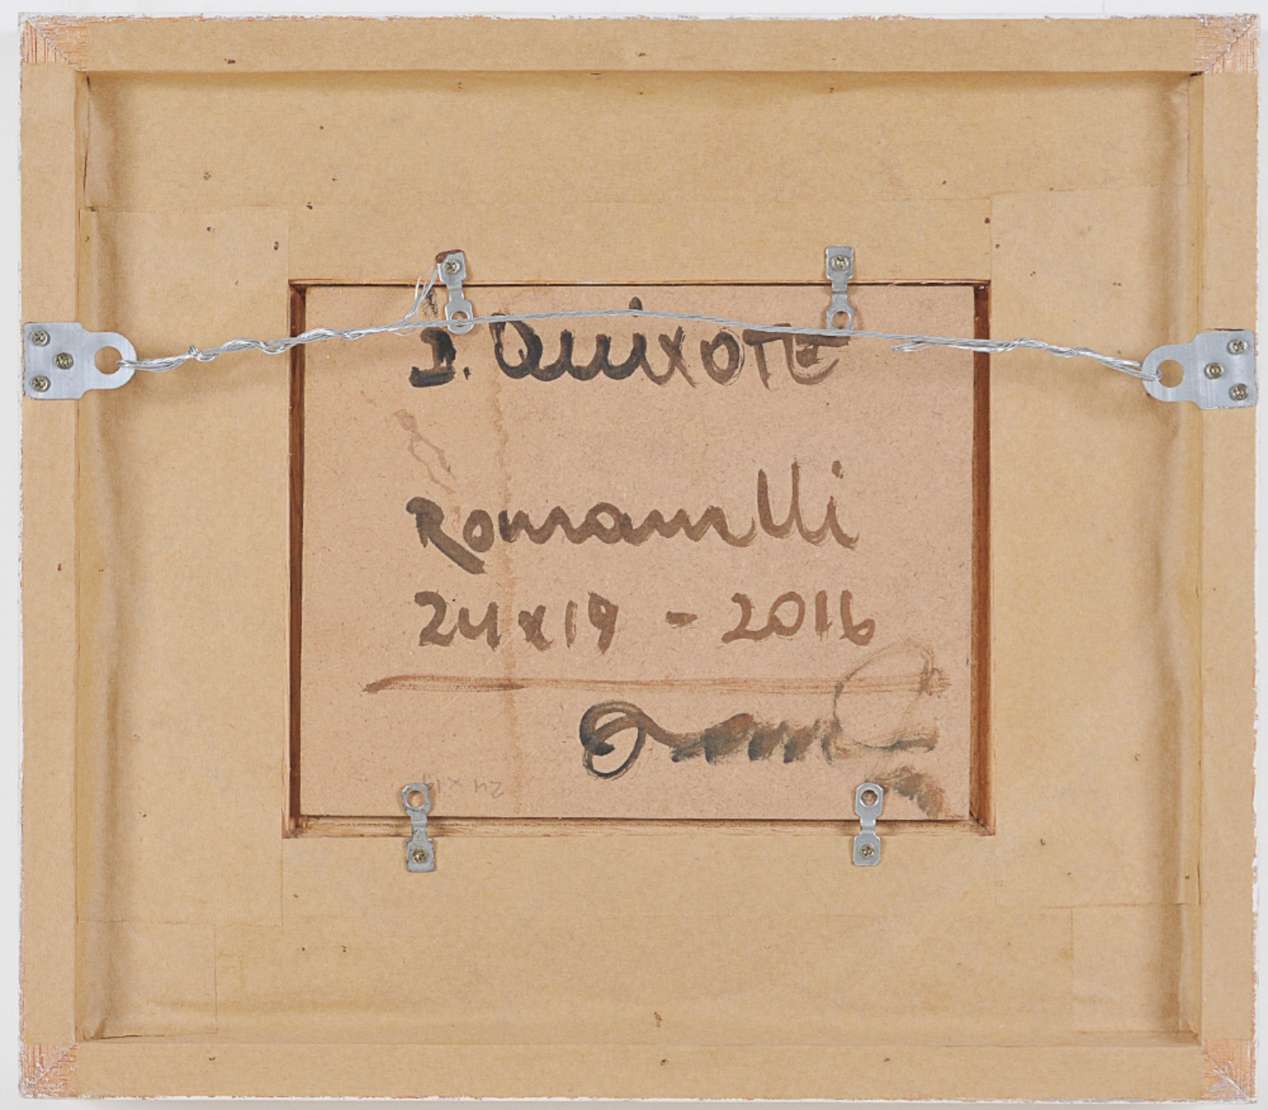 D. Quixote
Romanelli
24x19 - 2016
24 x 19